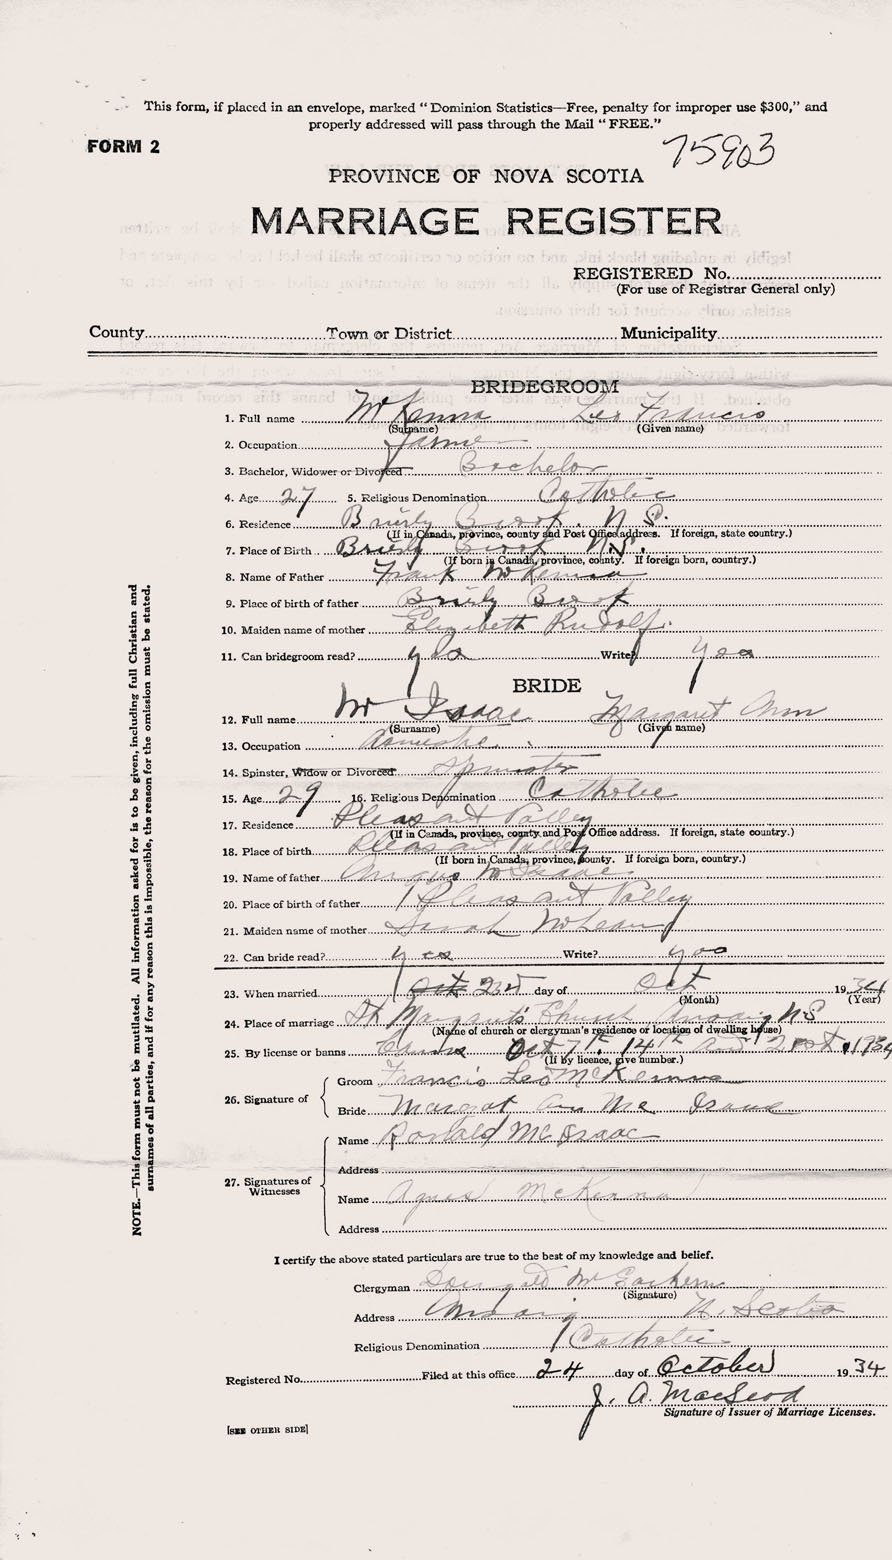 This form, if placed in an envelope, marked "Dominion Statistics—Free, penalty for improper use $300," and
properly addressed will pass through the Mail "FREE."
FORM 2
75903
PROVINCE OF NOVA SCOTIA
MARRIAGE REGISTER
REGISTERED No.
(For use of Registrar General only)
County Town or District Municipality
BRIDEGROOM
1. Full name McKenna Leo Francis
(Surname) (Given name)
2. Occupation farmer
3. Bachelor, Widower or Divorced Bachelor
4. Age 27 5. Religious Denomination Catholic
6. Residence Brierly Brook, N.S.
(If in Canada, province, county and Post Office address. If foreign, state country.)
7. Place of Birth Brierly Brook N.S.
(If born in Canada, province, county. If foreign born, country.)
8. Name of Father Frank McKenna
9. Place of birth of father Brierly Brook
10. Maiden name of mother Elizabeth Rudolf.
11. Can bridegroom read? yes Write? yes
BRIDE
12. Full name McIsaac Margaret Ann
(Surname) (Given name)
13. Occupation domestic
14. Spinster, Widow or Divorced Spinster
15. Age 29 16. Religious Denomination Catholic
17. Residence Pleasant Valley
(If in Canada, province, county and Post Office address. If foreign, state country.)
18. Place of birth Pleasant Valley
(If born in Canada, province, county. If foreign born, country.)
19. Name of father Angus McIsaac
20. Place of birth of father Pleasant Valley
21. Maiden name of mother Sarah McLean
22. Can bride read? yes Write? yes
23. When married Oct 23rd day of Oct 1934
(Month) (Year)
24. Place of marriage St Margaret's Church Arisaig N.S
(Name of church or clergyman's residence or location of dwelling house)
25. By license or banns Banns Oct 7th, 14th and 21st, 1934
(If by licence, give number.)
26. Signature of
Groom Francis Leo McKenna
Bride Margaret Ann Mc Isaac
27. Signatures of Witnesses
Name Ronald McIsaac
Address
Name Agnes McKenna
Address
I certify the above stated particulars are true to the best of my knowledge and belief.
Clergyman Dougald McEachern
(Signature)
Address Arisaig N. Scotia
Religious Denomination Catholic
Registered No. Filed at this office 24 day of October 1934
J. A. MacLeod
Signature of Issuer of Marriage Licenses.
[SEE OTHER SIDE]
NOTE.—This form must not be mutilated. All information asked for is to be given, including full Christian and
surnames of all parties, and if for any reason this is impossible, the reason for the omission must be stated.